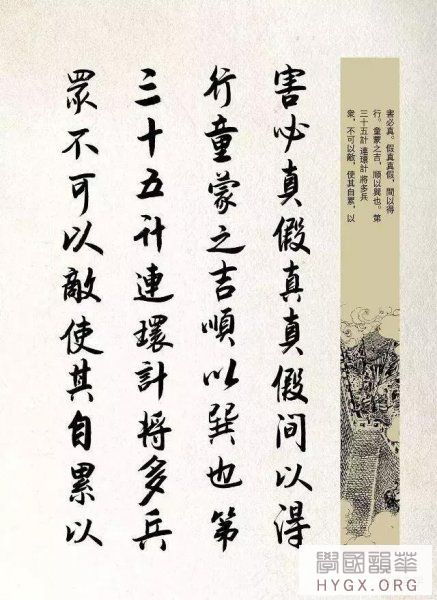 害必真。假真真假，間以得
行。童蒙之吉，順以巽也。第
三十五計 連環計 將多兵
衆，不可以敵，使其自累，以
害必真假真真假间以得
行童蒙之吉順以巽也第
三十五计連環計將多兵
眾不可以敵使其自累以
學國韻華
HYGX.ORG